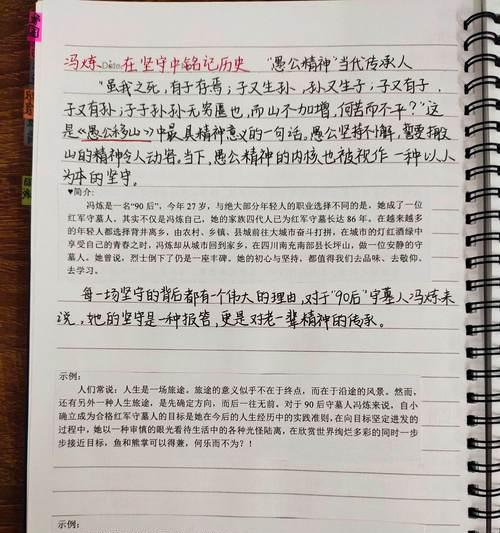 冯炼 在坚守中铭记历史 “愚公精神”当代传承人
“虽我之死,有子存焉;子又生孙,孙又生子;子又有子,
子又有孙;子子孙孙无穷匮也,而山不加增,何苦而不平?”这
是《愚公移山》中最具精神意义的一句话。愚公坚持不懈,誓要搬
山的精神令人动容。当下,愚公精神的内核也被视作一种以人
为本的坚守。
♥简介:
冯炼是一名“90后”,今年27岁,与绝大部分年轻人的职业选择不同的是,她成了一位
红军守墓人,其实不仅是冯炼自己,她的家族四代人已为红军守墓长达86年。在越来越多
的年轻人都选择背井离乡,由农村、乡镇、县城前往大城市奋斗打拼,在城市的灯红酒绿中
享受自己的青春之时,冯炼却从城市回到家乡,在四川南充南部县长坪山,做一位安静的守
墓人。她曾说,烈士倒下了仍是一座丰碑。她的初心与坚持,都值得我们去品味、去敬仰、
去学习。
每一场坚守的背后都有一个伟大的理由,对于“90后”守墓人冯炼来
说,她的坚守是一种报答,更是对老一辈精神的传承。
示例:
人们常说:人生是一场旅途,旅途的意义似乎不在于终点,而在于沿途的风景。然而,
还有另外一种人生旅途,是先确定方向,而后一往无前。对于90后守墓人冯炼来说,自小
确立成为合格红军守墓人的目标是她在今后的人生经历中的实践准则,在向目标坚定进发的
过程中,她以一种审慎的眼光看待生活中的各种光怪陆离,在欣赏世界绚烂多彩的同时一步
步接近目标,鱼和熊掌可以得兼,何乐而不为?!
示例: